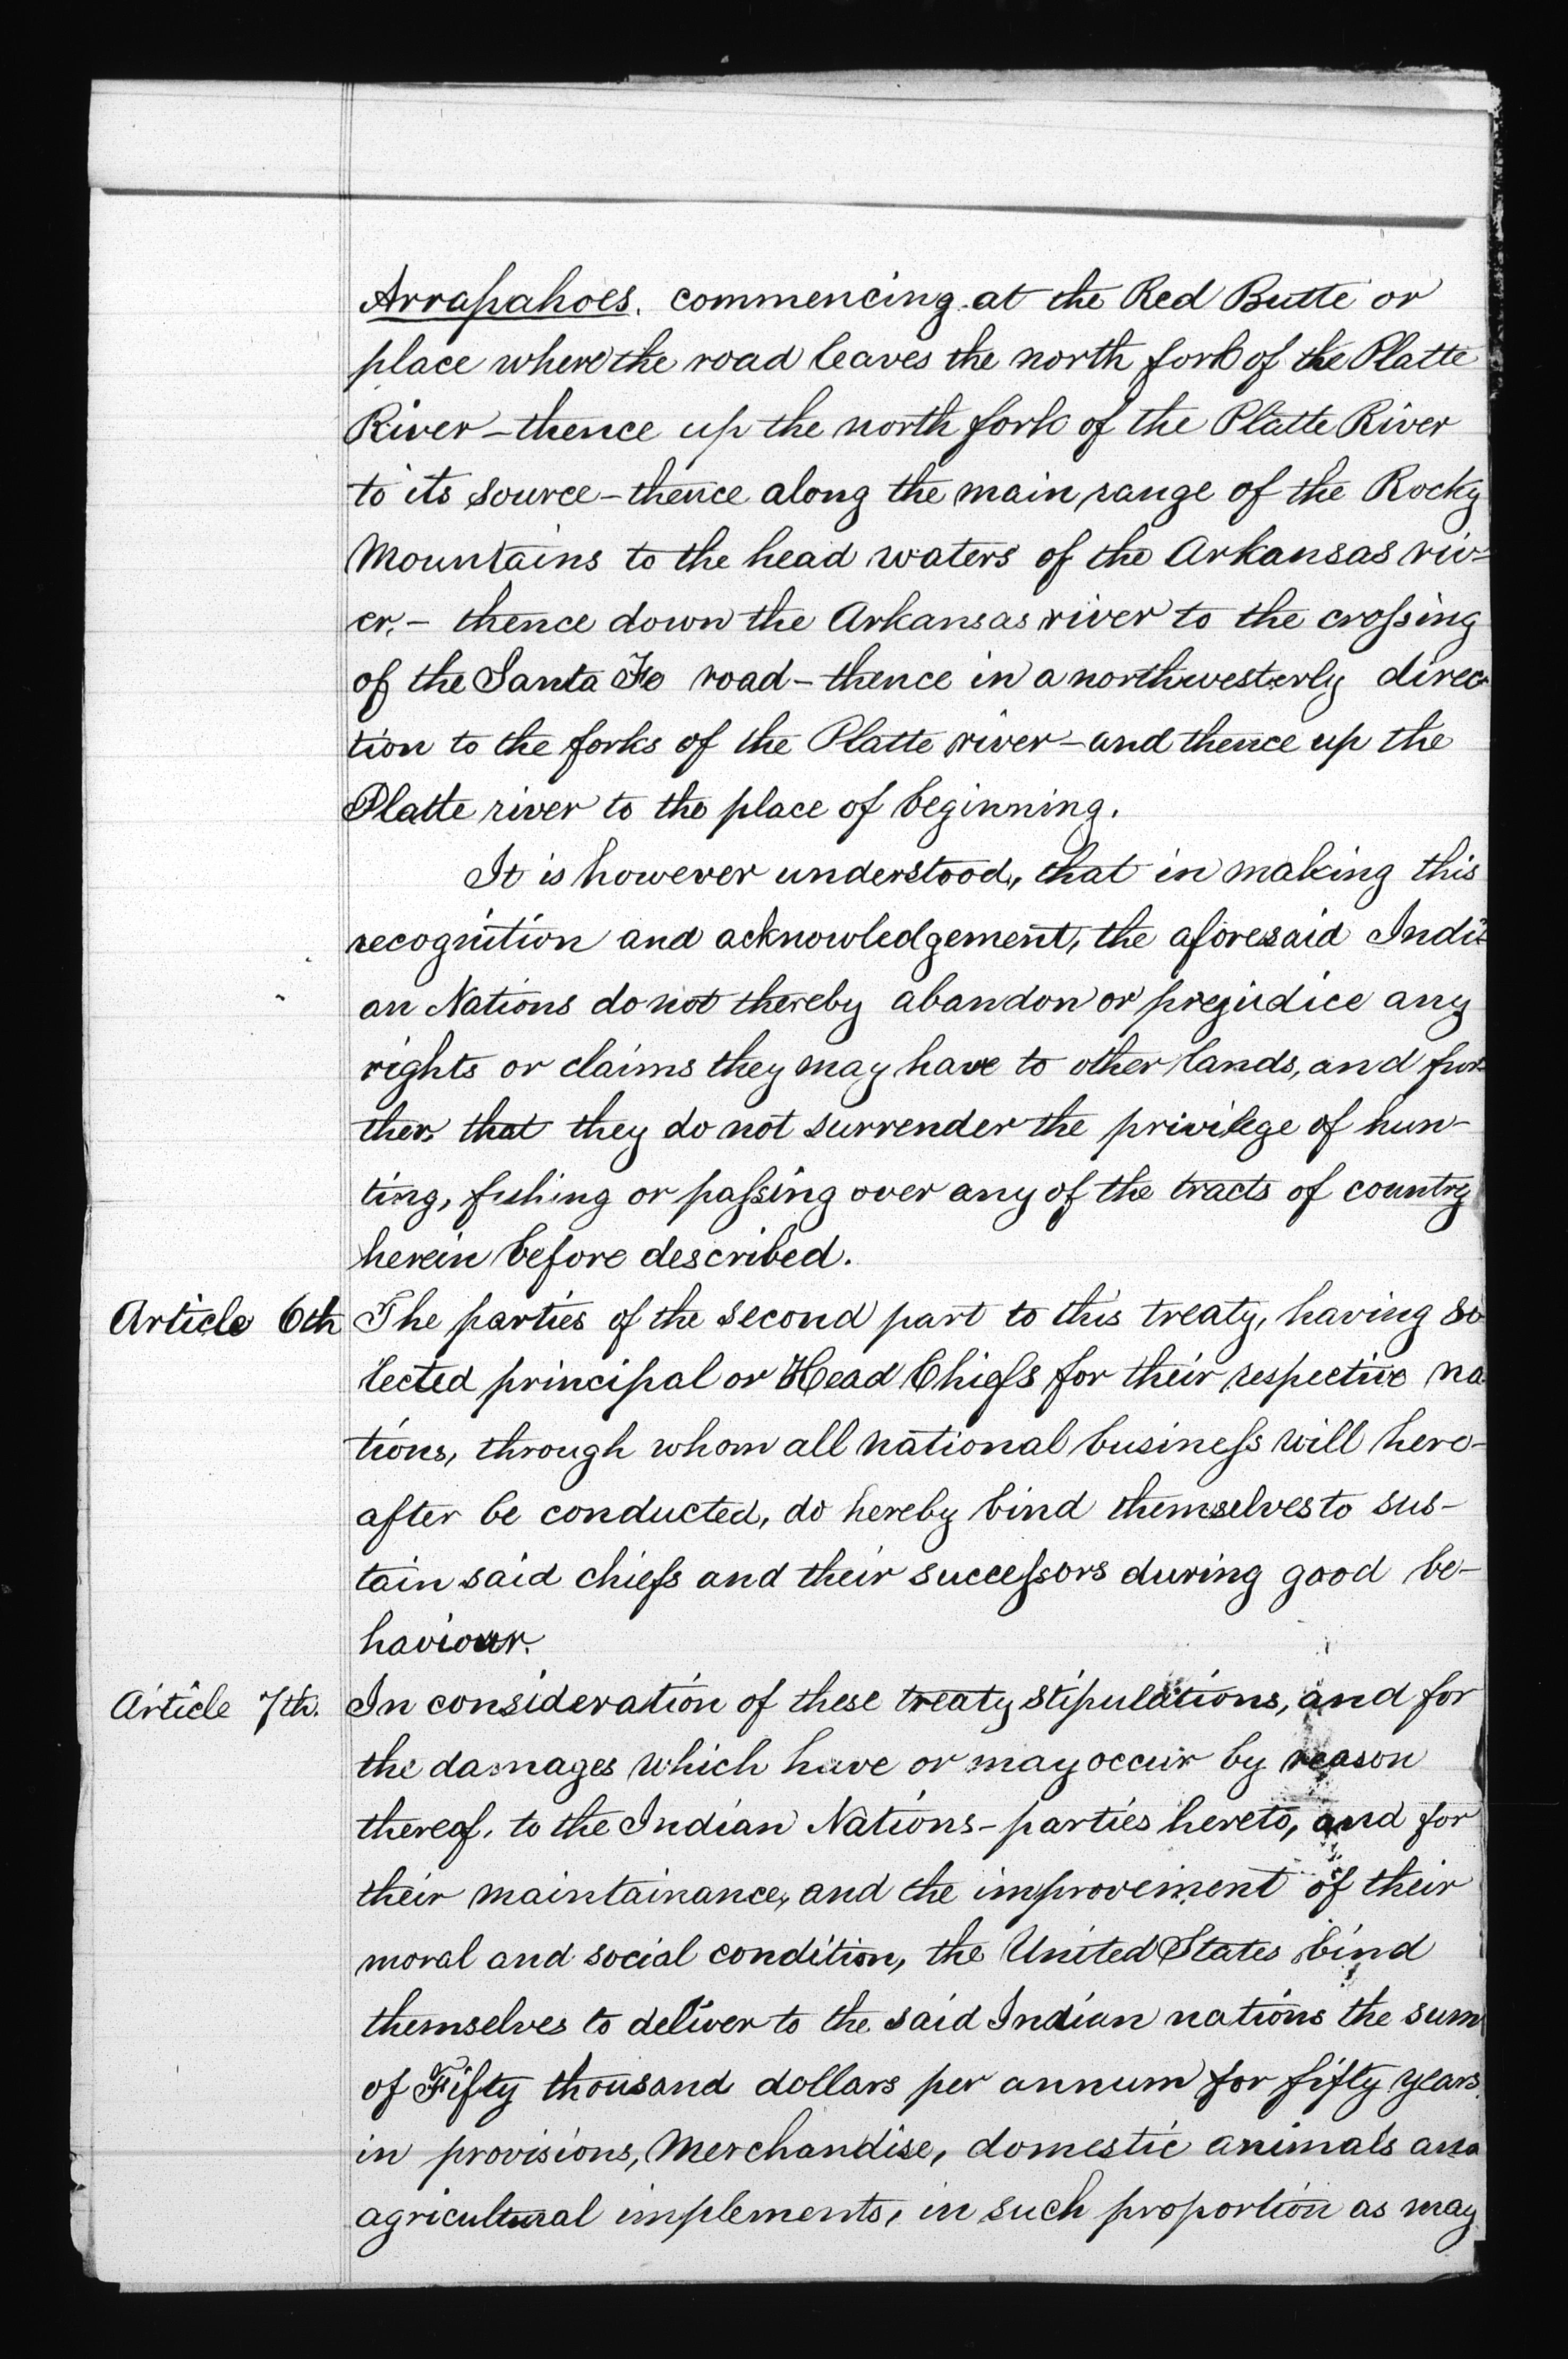 Arrapahoes. commencing at the Red Butte or
place where the road leaves the north fork of the Platte
River – thence up the north fork of the Platte River
to its source – thence along the main range of the Rocky
Mountains to the head waters of the Arkansas riv-
er. – thence down the Arkansas river to the crossing
of the Santa Fe road – thence in a northwesterly direc-
tion to the forks of the Platte river – and thence up the
Platte river to the place of beginning.
It is however understood, that in making this
recognition and acknowledgement, the aforesaid Indi-
an Nations do not thereby abandon or prejudice any
rights or claims they may have to other lands, and fur-
ther, that they do not surrender the privilege of hun-
ting, fishing or passing over any of the tracts of country
herein before described.
Article 6th The parties of the second part to this treaty, having se-
lected principal or Head Chiefs for their respective na-
tions, through whom all national business will here-
after be conducted, do hereby bind themselves to sus-
tain said chiefs and their successors during good be-
haviour.
Article 7th. In consideration of these treaty stipulations, and for
the damages which have or may occur by reason
thereof, to the Indian Nations – parties hereto, and for
their maintainance, and the improvement of their
moral and social condition, the United States bind
themselves to deliver to the said Indian nations the sum
of Fifty thousand dollars per annum for fifty years,
in provisions, Merchandise, domestic animals and
agricultural implements, in such proportion as may